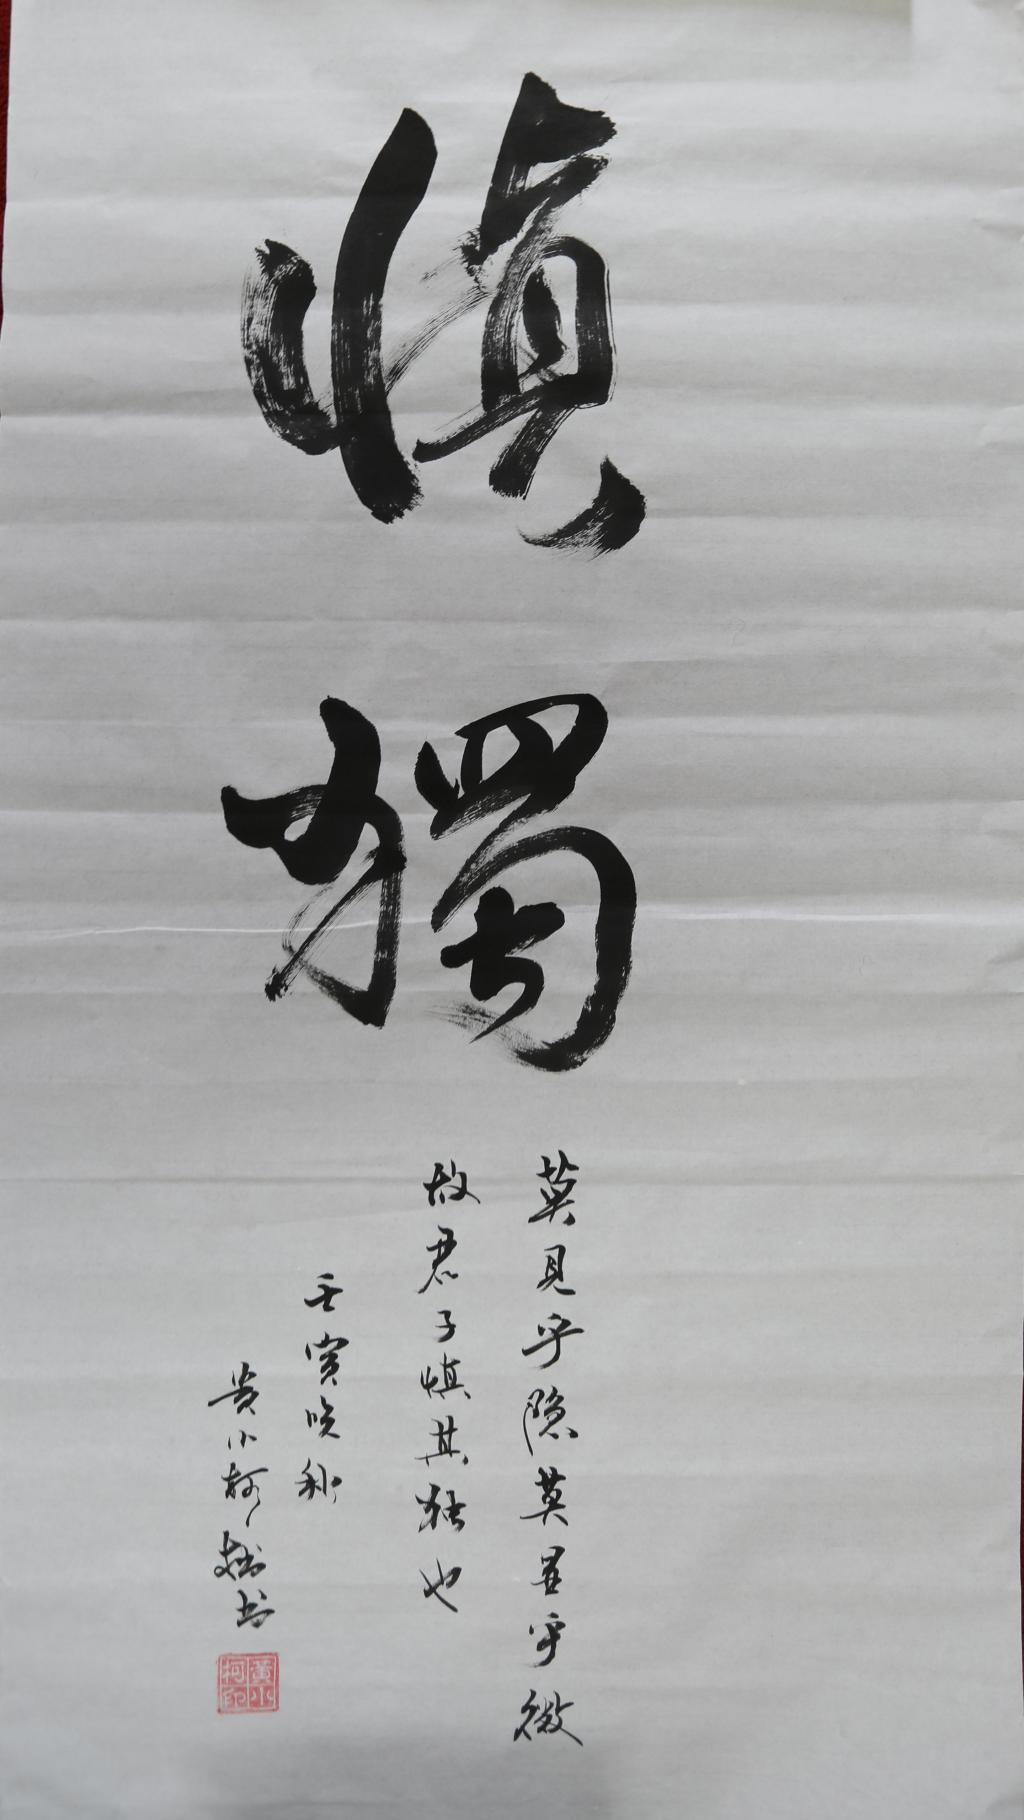 慎獨
莫見乎隐莫显乎微
故君子慎其独也
壬寅晚秋
黄小柯拙书
黄小柯印